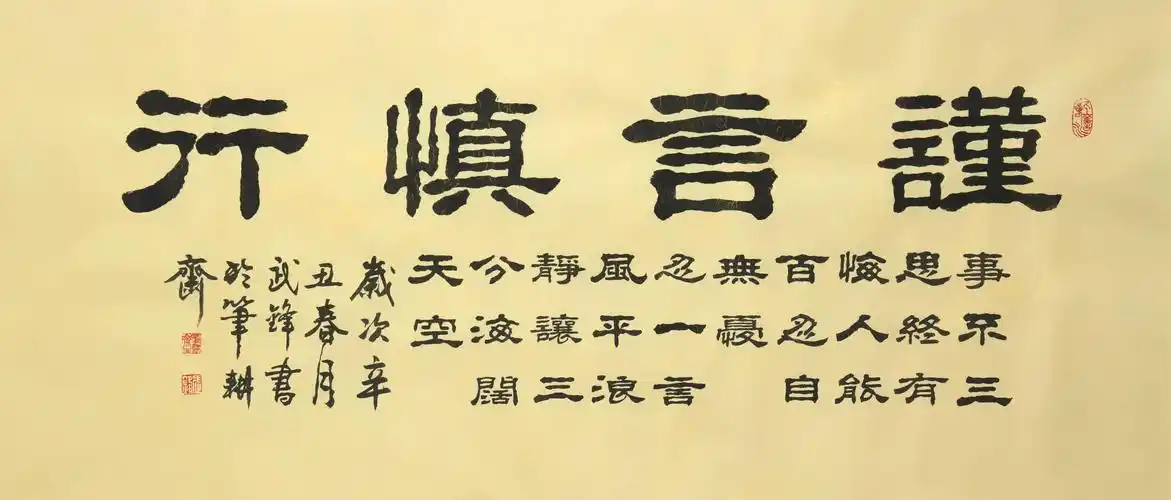 謹言慎行
事不三
思終有
悔人能
百忍自
無憂
忍一言
風平浪
靜讓三
分海闊
天空
歲次辛
丑春月
武鋒書
於筆耕
齋